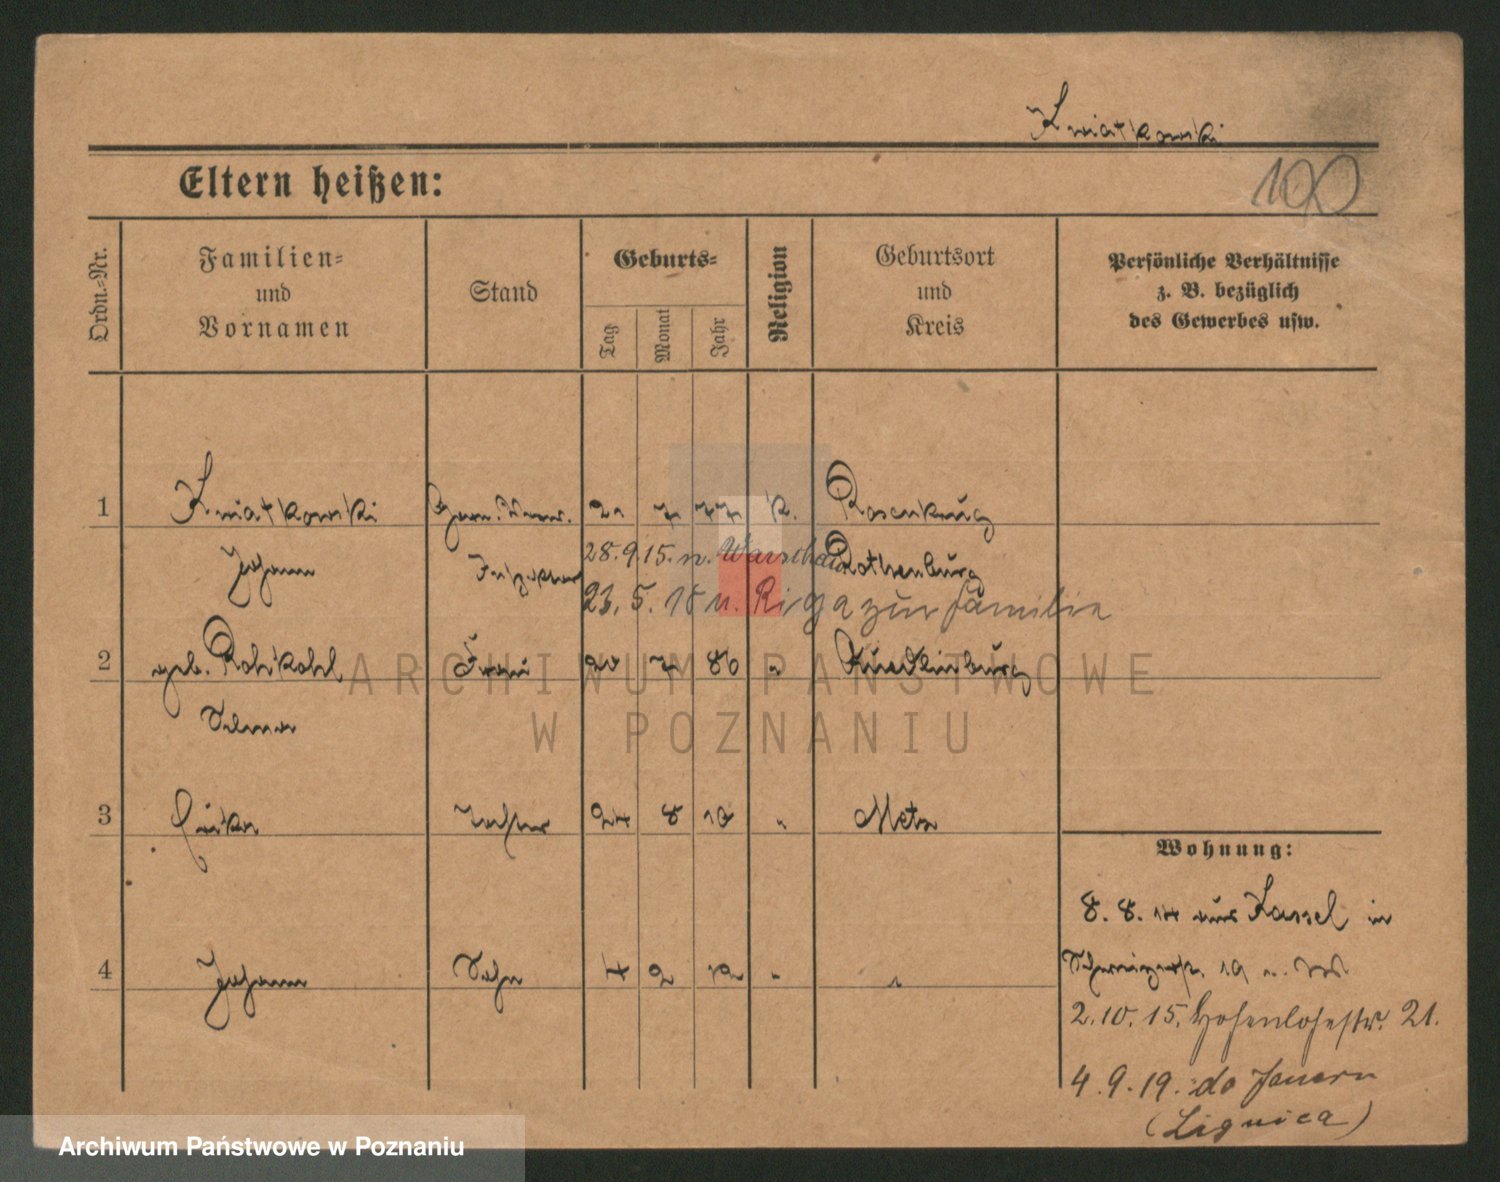 Kwiatkowski
Eltern heißen:
100
Ordn.-Nr.
Familien-
und
Vornamen
Stand
Geburts-
Tag
Monat
Jahr
Religion
Geburtsort
und
Kreis
Persönliche Verhältnisse
z. B. bezüglich
des Gewerbes usw.
1 Kwiatkowski Garn. Verw. 21 7 77 K. Rosenkrug
Johann Inspektor 28.9.15. n. Warschau Rothenburg
23. 5. 18 n. Riga zur Familie
2 geb. Frau 20 7 86 " Quedlinburg
Selma
3 Tochter 24 8 10 " Metz
4 Johann Sohn 4 2 12 " "
Wohnung:
8. 8. 14 aus Kassel in
19
2.10.15. Hohenlohestr. 21.
4.9.19. do Jauern
(Lignica)
ARCHIWUM PAŃSTWOWE
W POZNANIU
Archiwum Państwowe w Poznaniu